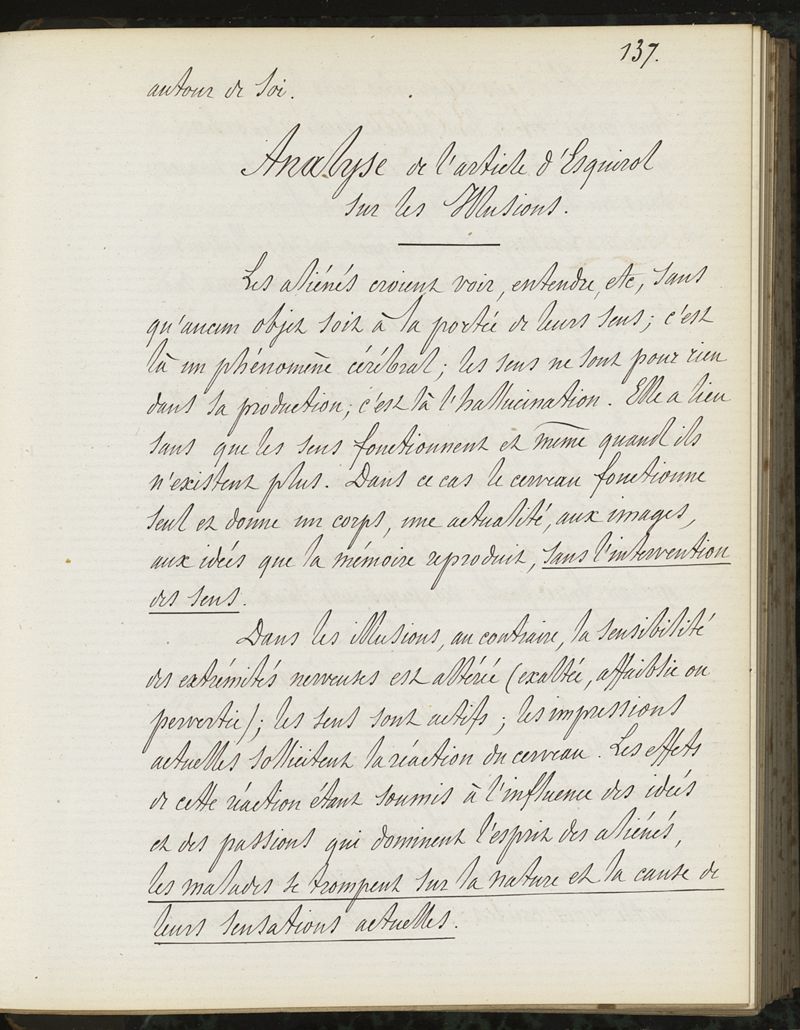 137.
autour de soi.
Analyse de l'article d'Esquirol
sur les Illusions.
Les aliénés croient voir, entendre, etc, sans
qu'aucun objet soit à la portée de leurs sens ; c'est
là un phénomène cérébral ; les sens ne sont pour rien
dans sa production ; c'est là l'hallucination. Elle a lieu
sans que les sens fonctionnent et même quand ils
n'existent plus. Dans ce cas le cerveau fonctionne
seul et donne un corps, une actualité, aux images,
aux idées que la mémoire reproduit, sans l'intervention
des sens.
Dans les illusions, au contraire, la sensibilité
des extrémités nerveuses est altérée (exaltée, affaiblie ou
pervertie) ; les sens sont actifs ; les impressions
actuelles sollicitent la réaction du cerveau. Les effets
de cette réaction étant soumis à l'influence des idées
et des passions qui dominent l'esprit des aliénés,
les malades se trompent sur la nature et la cause de
leurs sensations actuelles.